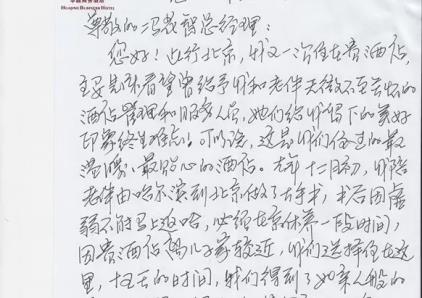 HUAQING BUSINESS HOTEL
尊敬的 总经理：
您好！此行北京，我又一次住在贵酒店，
主要是来看望曾给予我和老伴无微不至关怀的
酒店管理和服务人员，她们给我留下的美好
印象终生难忘。可以说，这是我们住过的最
温暖、最贴心的酒店。去年十二月初，我陪
老伴由哈尔滨到北京做了大手术，术后因虚
弱不能马上返哈，必须在京休养一段时间，
因贵酒店离儿子家较近，我们选择住在这
里，十几天的时间，我们得到了如亲人般的